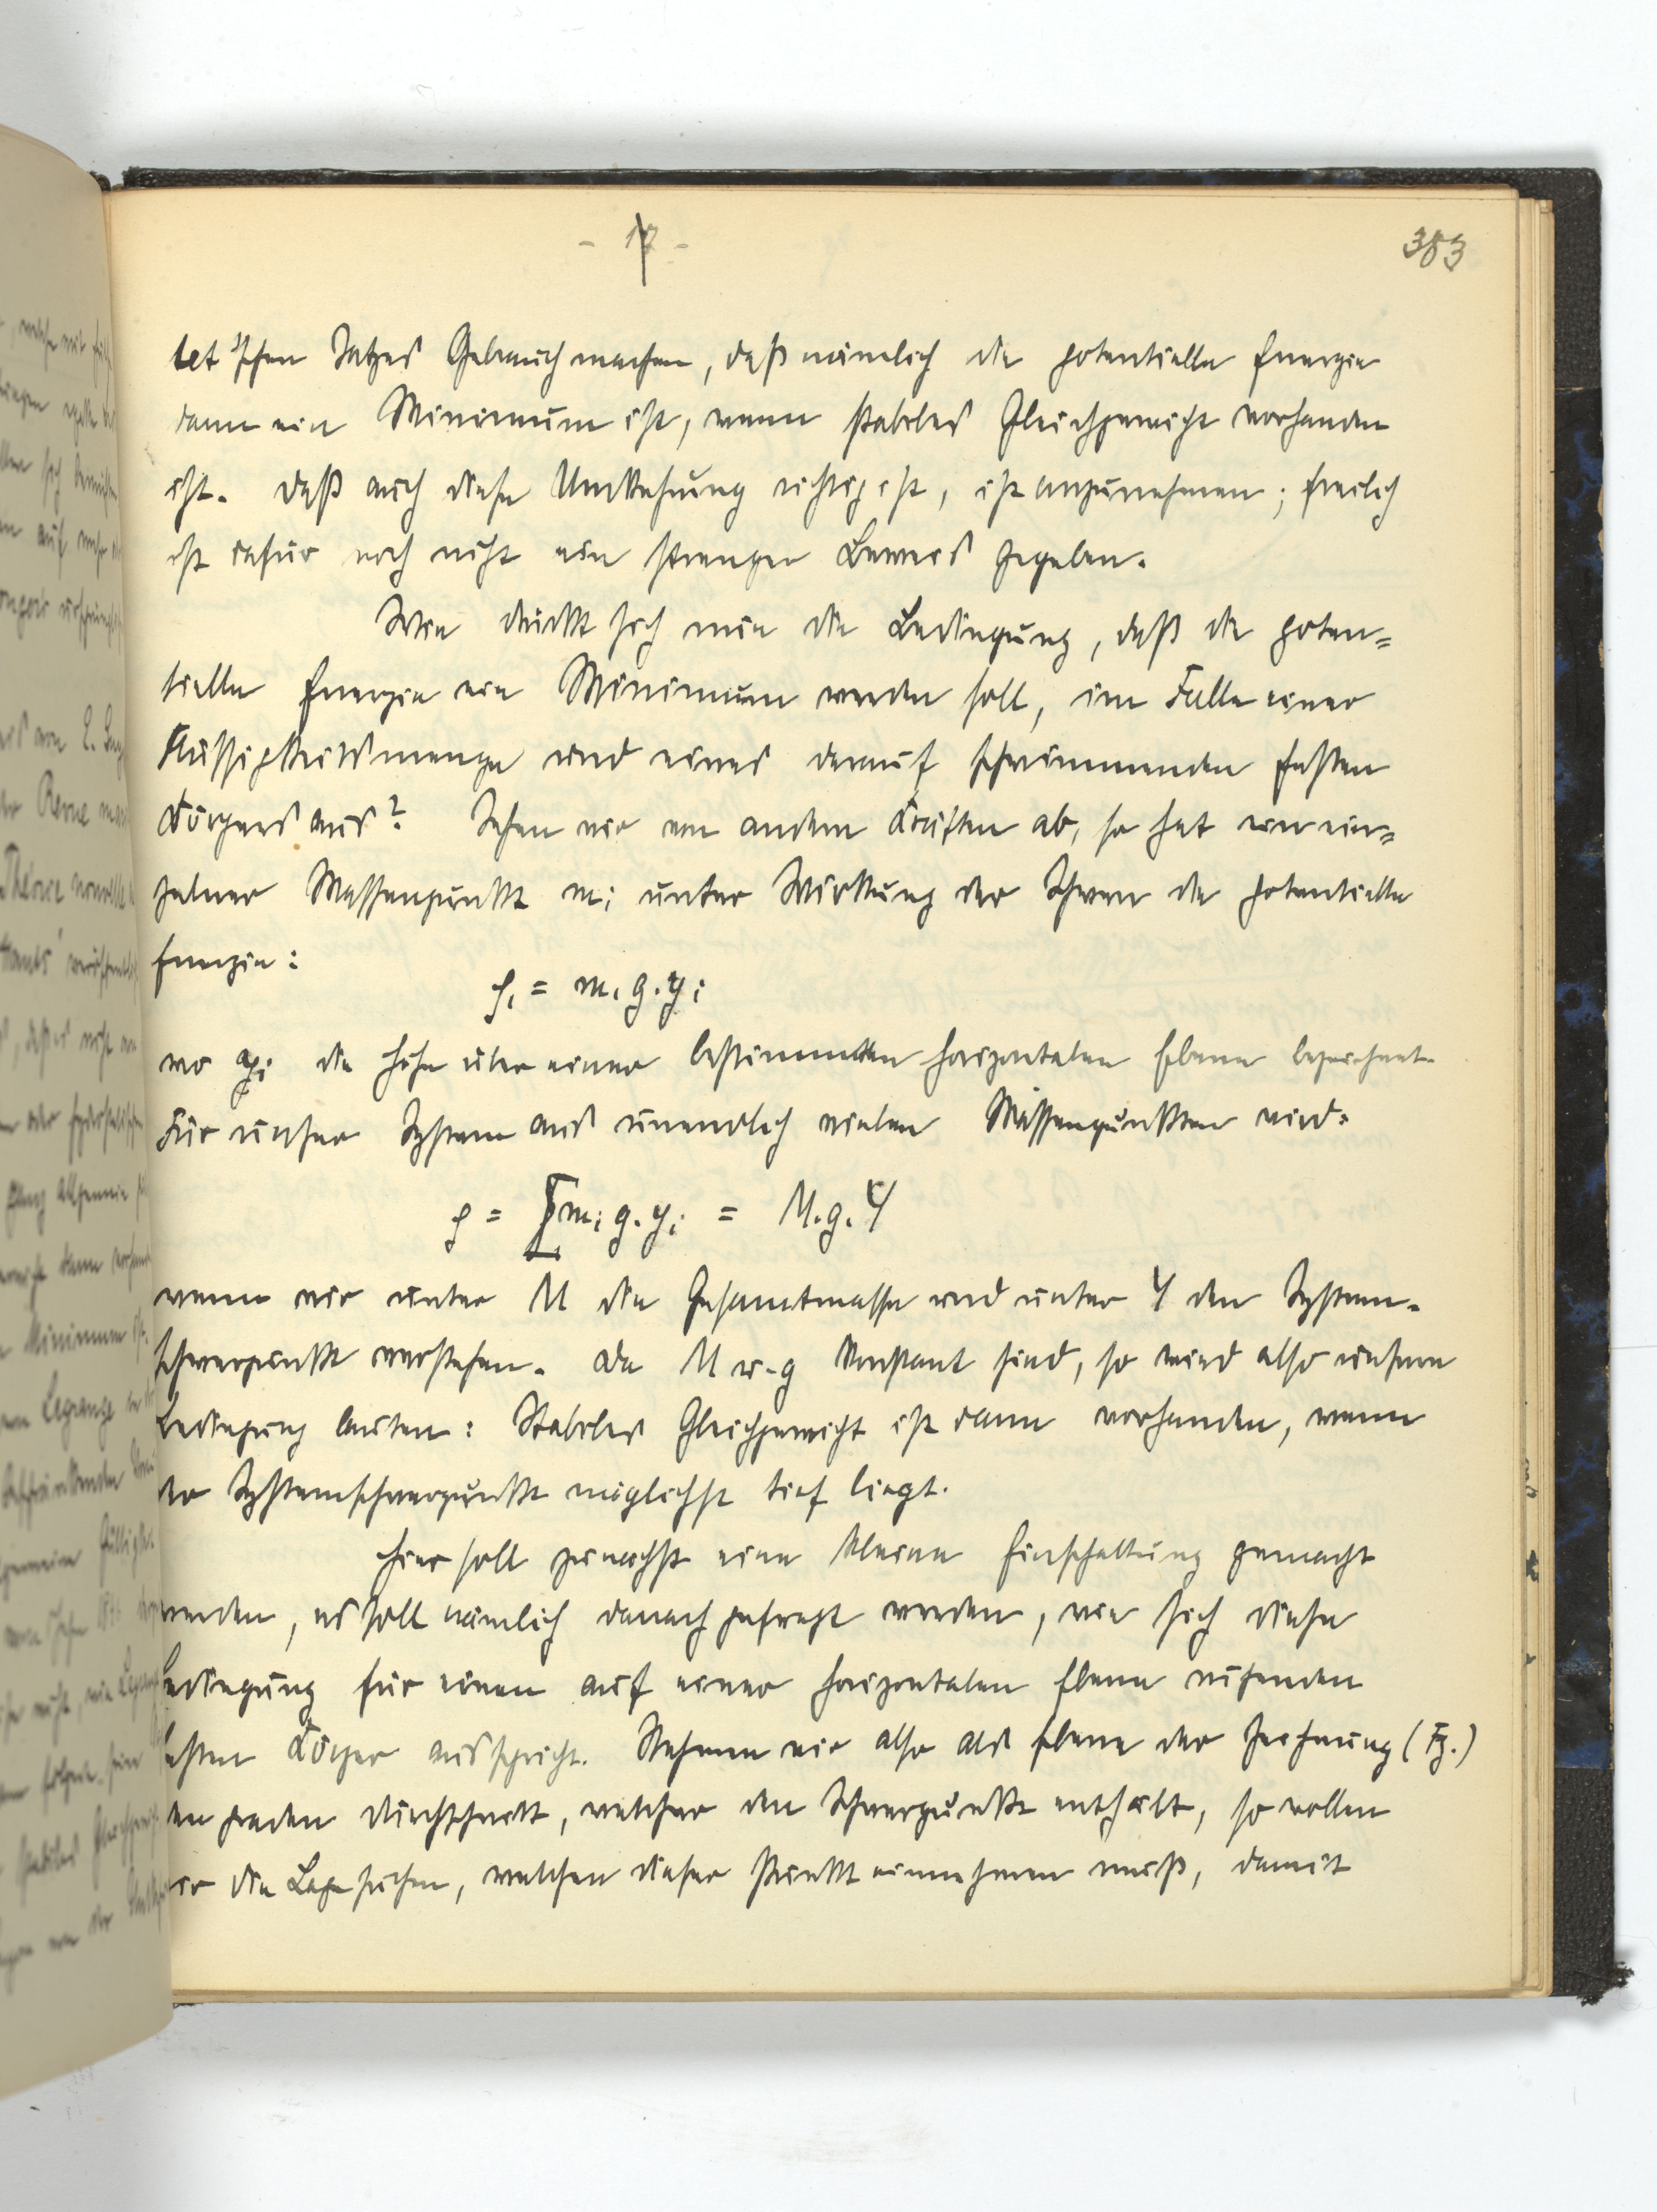 - 17 -
383
tet'schen Satzes Gebrauch machen, daß nämlich die potentielle Energie
dann ein Minimum ist, wenn stabiles Gleichgewicht vorhanden
ist. Daß auch diese Umkehrung richtig ist, ist anzunehmen; freilich
ist dafür noch nicht ein strenger Beweis gegeben.
Wie drückt sich nun die Bedingung, daß die poten=
tielle Energie ein Minimum werden soll, im Falle einer
Flüssigkeitsmenge und eines darauf schwimmenden festen
Körpers aus? Sehen wir von andern Kräften ab, so hat ein ein=
zelner Massenpunkt mi unter Wirkung der Schwere die potentielle
Energie:
φi = mi g. yi
wo yi die Höhe über einer bestimmten horizontalen Ebene bezeichnet.
Für unser System aus unendlich vielen Massenpunkten wird:
φ = ∑ mi g. yi = M. g. Y
wenn wir unter M die Gesamtmasse und unter Y den System-
schwerpunkt verstehen. Da M u. g konstant sind, so wird also unsere
Bedingung lauten: Stabiles Gleichgewicht ist dann vorhanden, wenn
der Systemschwerpunkt möglichst tief liegt.
Hier soll zunächst eine kleine Einschaltung gemacht
werden, es soll nämlich danach gefragt werden, wie sich diese
Bedingung für einen auf einer horizontalen Ebene ruhenden
festen Körper ausspricht. Nehmen wir also als Ebene der Zeichnung (Fg.)
den graden Durchschnitt, welcher den Schwerpunkt enthält, so wollen
wir die Lage suchen, welchen dieser Punkt einnehmen muß, damit